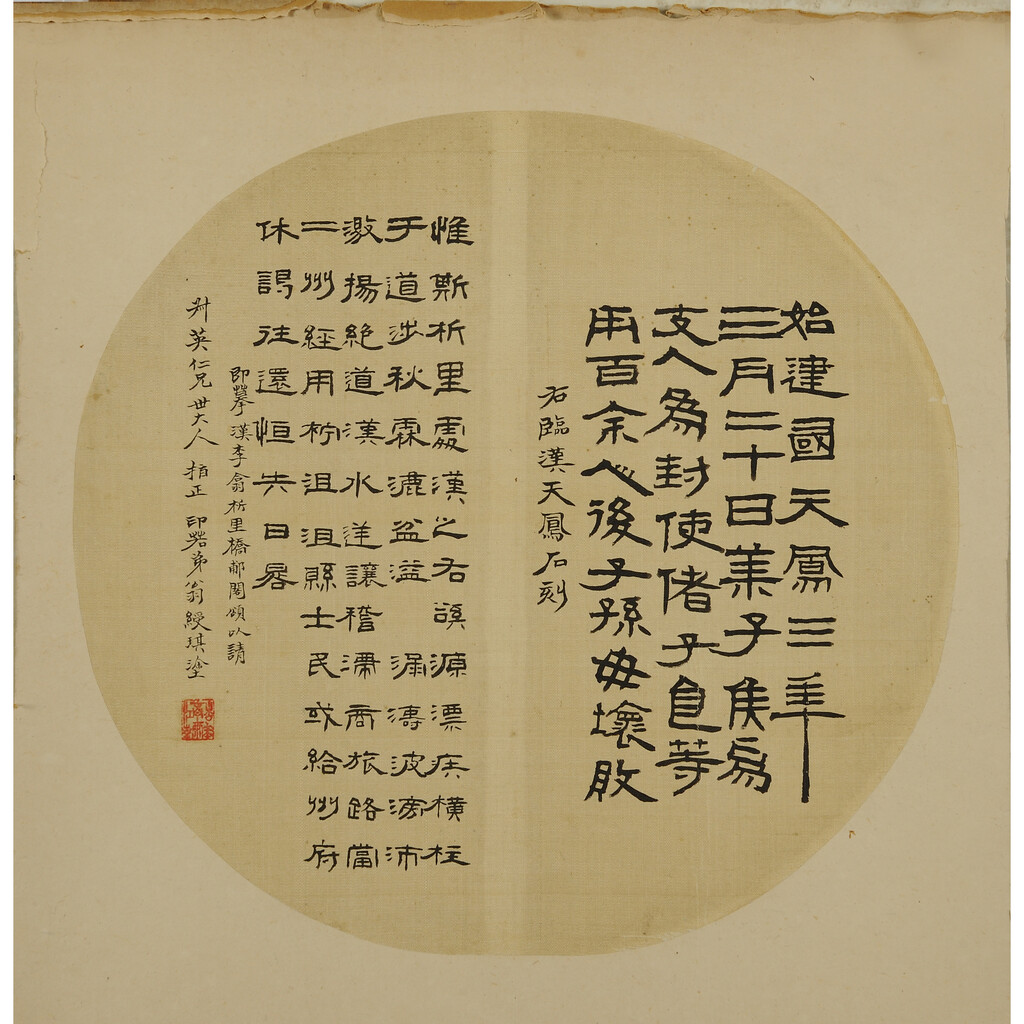 始建國天鳳三年
三月二十日萊子侯爲
支人爲封使偖子自等
用百余人後子孫毋壞敗
右臨漢天鳳石刻
惟斯析里處漢之右𧮾源漂疾橫柱
于道涉秋霖漉盆溢㵝濤波滂沛
激揚絕道漢水逆讓稽滯商旅路當
二州經用柠沮沮縣士民或給州府
休謁往還恒失日晷
即摹漢李翕析里橋郙閣頌以請
尗英仁兄世大人指正 印若弟翁綬琪塗